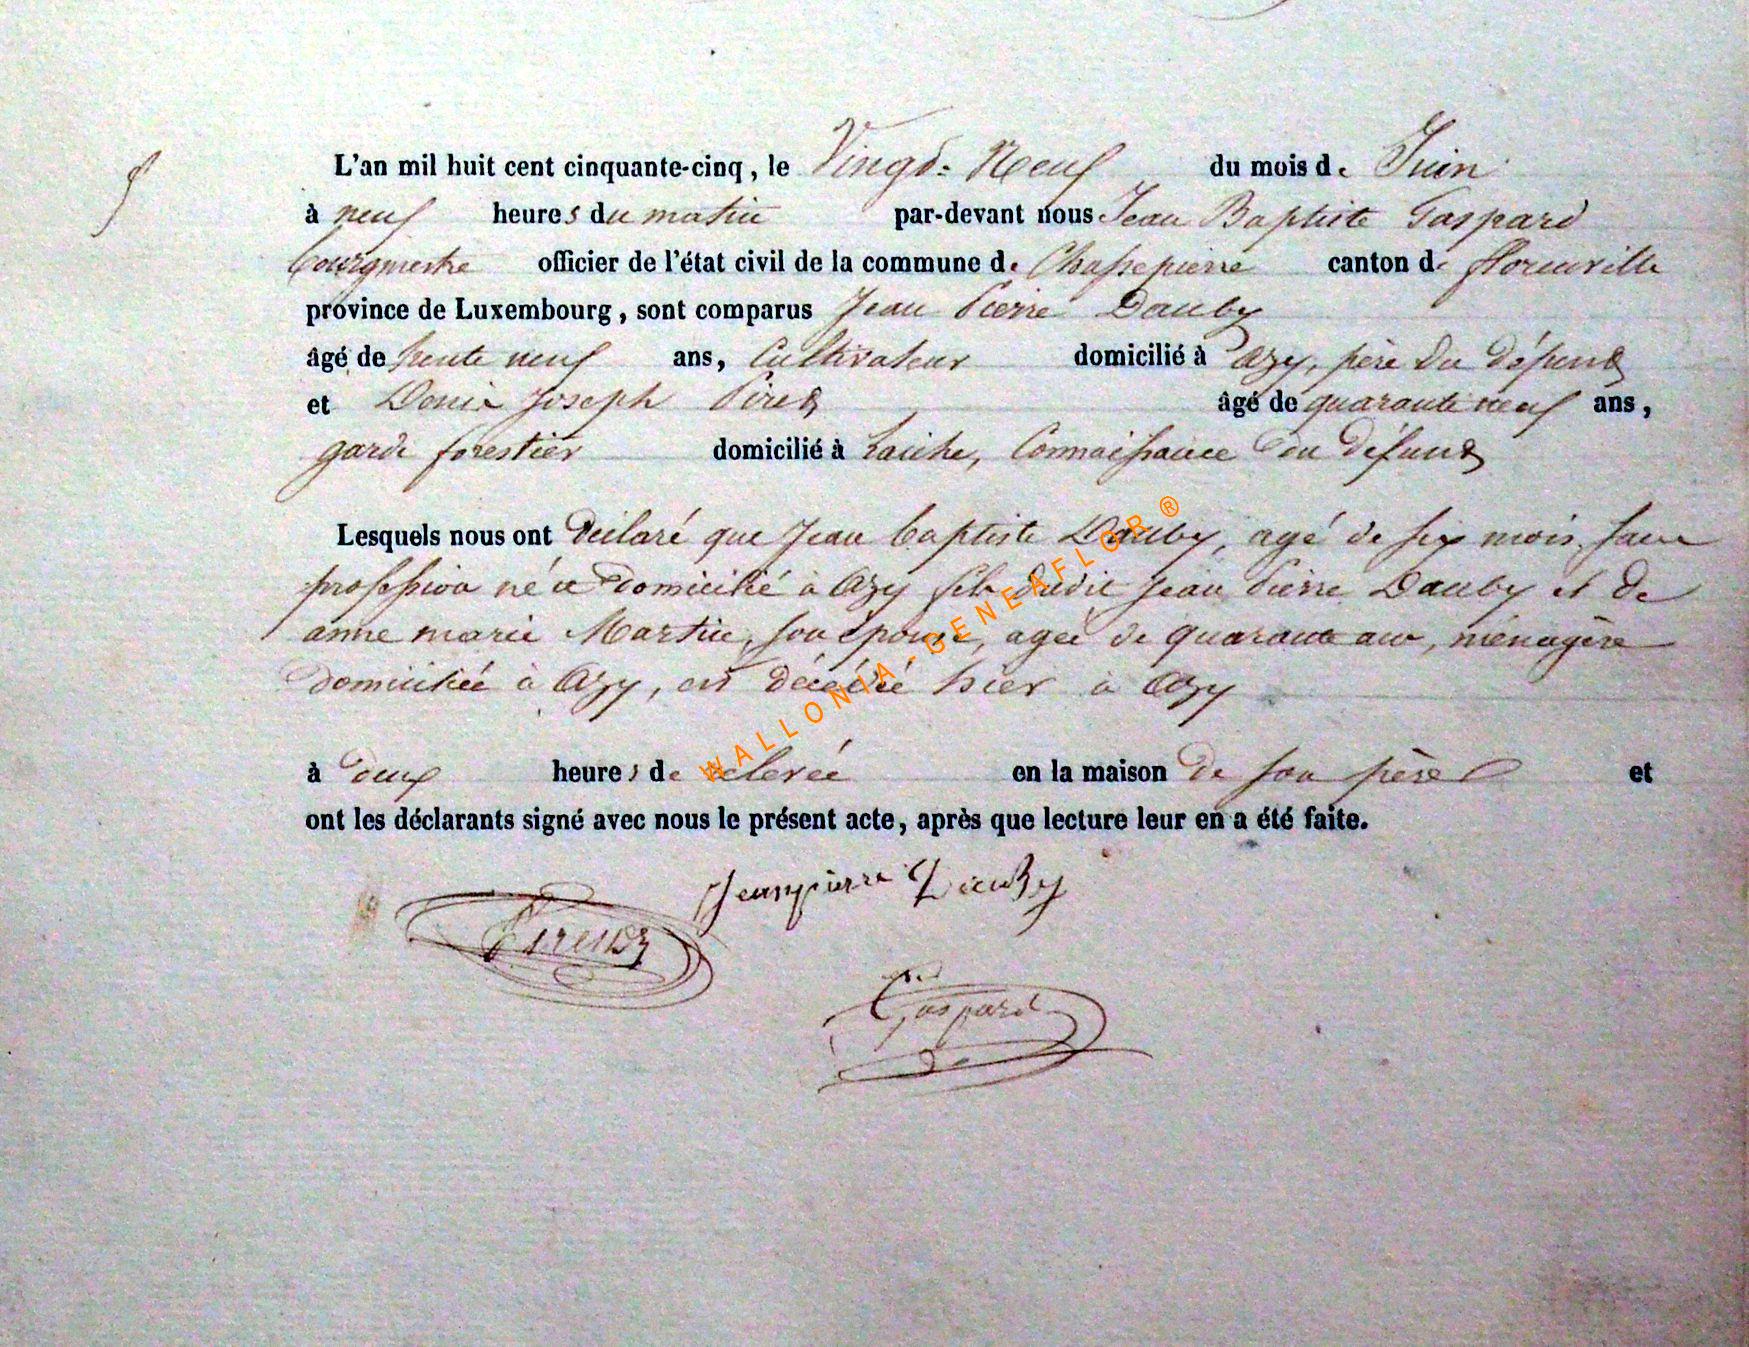 L'an mil huit cent cinquante-cinq, le Vingt-Neuf du mois de Juin
à neuf heures du matin par-devant nous Jean Baptiste Gaspard
bourgmestre officier de l'état civil de la commune de Chassepierre canton de florenville
province de Luxembourg, sont comparus Jean Pierre Dauby
âgé de trente neuf ans, Cultivateur domicilié à Azy, père du défunt
et Denis Joseph Piret âgé de quarante neuf ans,
garde forestier domicilié à Laiche, Connaissance du défunt
Lesquels nous ont déclaré que Jean baptiste Dauby, agé de six mois, sans
profession né et domicilié à Azy fils dudit Jean Pierre Dauby et de
anne marie Martin, son épouse, agée de quarante ans, ménagère
domiciliée à Azy, est décédé hier à Azy
à deux heures de relevée en la maison de son père et
ont les déclarants signé avec nous le présent acte, après que lecture leur en a été faite.
Jeanpierre Dauby
Gaspard
WALLONIA-GENEAFLOR ®